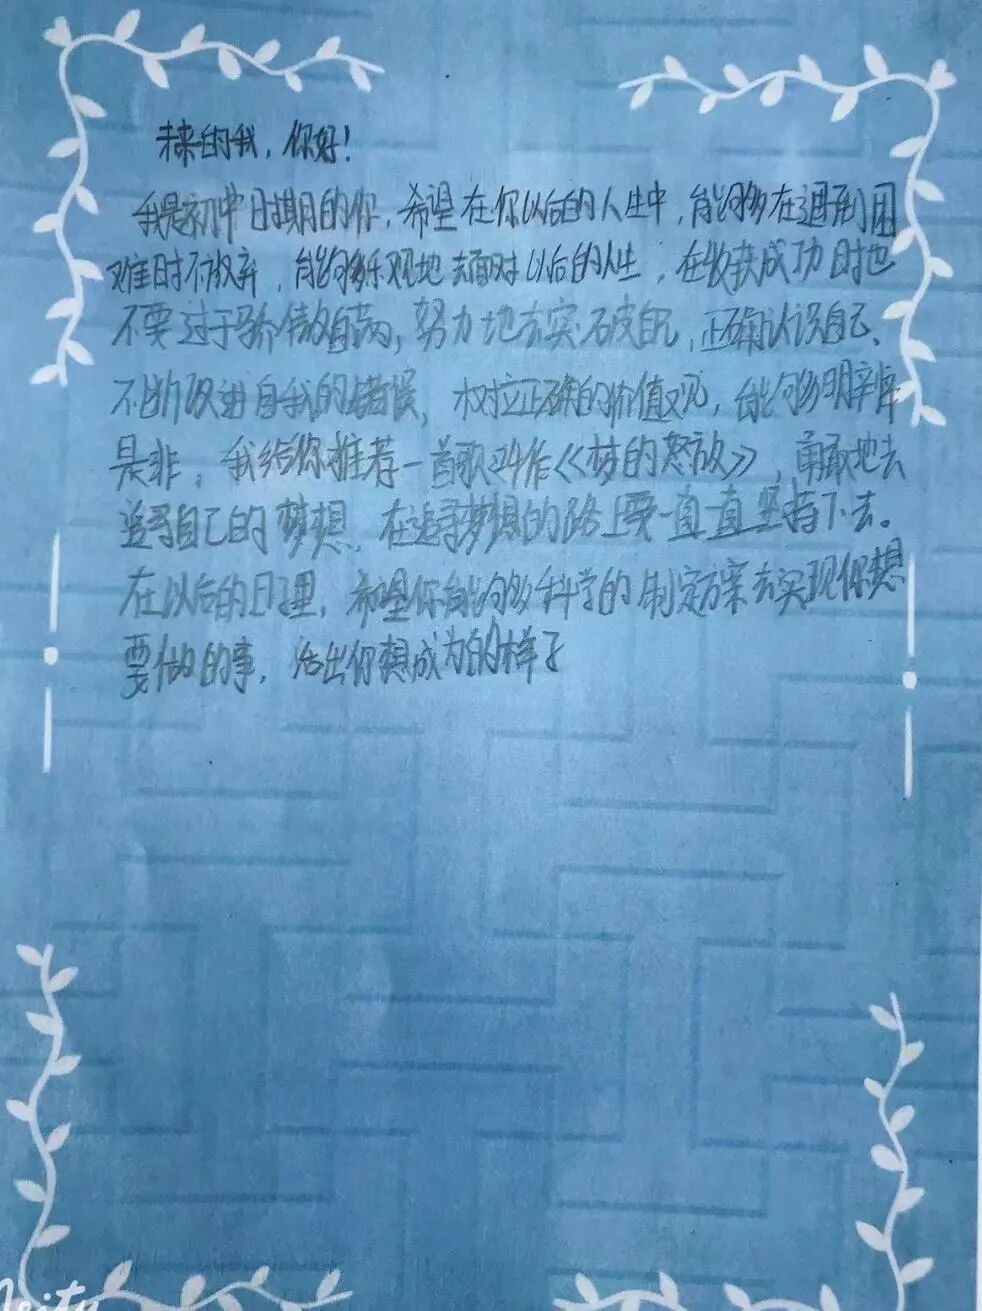 未来的我，你好！
我是初中时期的你，希望在你以后的人生中，能够在遇到困
难时不放弃，能够乐观地去面对以后的人生，在收获成功时也
不要过于骄傲自满，努力地去突破自己，正确认识自己、
不断改进自我的错误，树立正确的价值观，能够明辛辛
是非，我给你推荐一首歌叫作《梦的怒放》，勇敢地去
追寻自己的梦想，在追寻梦想的路上要一直一直坚持下去。
在以后的日子里，希望你能够科学的制定方案去实现你想
要做的事，活出你想成为的样子